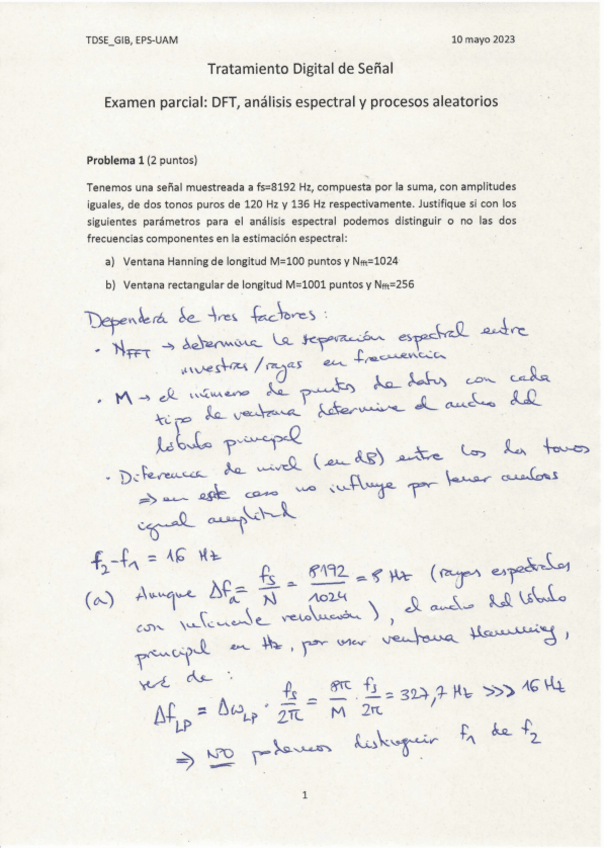 TDSE_GIB, EPS-UAM 10 mayo 2023
Tratamiento Digital de Señal
Examen parcial: DFT, análisis espectral y procesos aleatorios
Problema 1 (2 puntos)
Tenemos una señal muestreada a fs=8192 Hz, compuesta por la suma, con amplitudes
iguales, de dos tonos puros de 120 Hz y 136 Hz respectivamente. Justifique si con los
siguientes parámetros para el análisis espectral podemos distinguir o no las dos
frecuencias componentes en la estimación espectral:
a) Ventana Hanning de longitud M=100 puntos y Nfft=1024
b) Ventana rectangular de longitud M=1001 puntos y Nfft=256
Dependerá de tres factores:
· NFFT → determina la separación espectral entre
muestras/rayas en frecuencia
· M → el número de puntos de datos con cada
tipo de ventana determina el ancho del
lóbulo principal
· Diferencia de nivel (en dB) entre los dos tonos
⇒ en este caso no influye por tener ambos
igual amplitud
f2-f1 = 16 Hz
(a) Aunque Δfa = fs/N = 8192/1024 = 8 Hz (rayas espectrales
con suficiente resolución), el ancho del lóbulo
principal en Hz, por usar ventana Hanning,
será de:
ΔfLP = ΔωLP · fs/2π = 8π/M · fs/2π = 327,7 Hz >>> 16 Hz
⇒ NO podemos distinguir f1 de f2
1